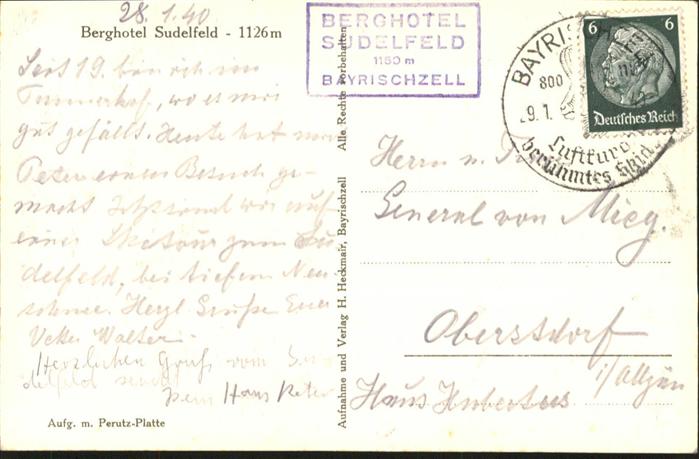 28.1.40
Berghotel Sudelfeld - 1126 m
Seit 19. bin ich im
Tannerhof, wo es mir
gut gefällt. Heute hat mir
Peter einen Besuch ge-
macht. Jetzt sind wir auf
einer Skitour zum Su-
delfeld, bei tiefem Neu-
schnee. Herzl. Grüße Euer
Vetter Walter.
Herzlichen Gruß vom Su-
delfeld sendet
Hans Peter
Aufg. m. Perutz-Platte
Aufnahme und Verlag H. Heckmair, Bayrischzell
Alle Rechte vorbehalten
BERGHOTEL
SUDELFELD
1150 m
BAYRISCHZELL
BAYRIS
800
Luftkuro
berühmtes Ski
6 6
Deutsches Reich
Herrn u.
General von Mieg.
Oberstdorf
i/Allgäu
Haus Hubertus